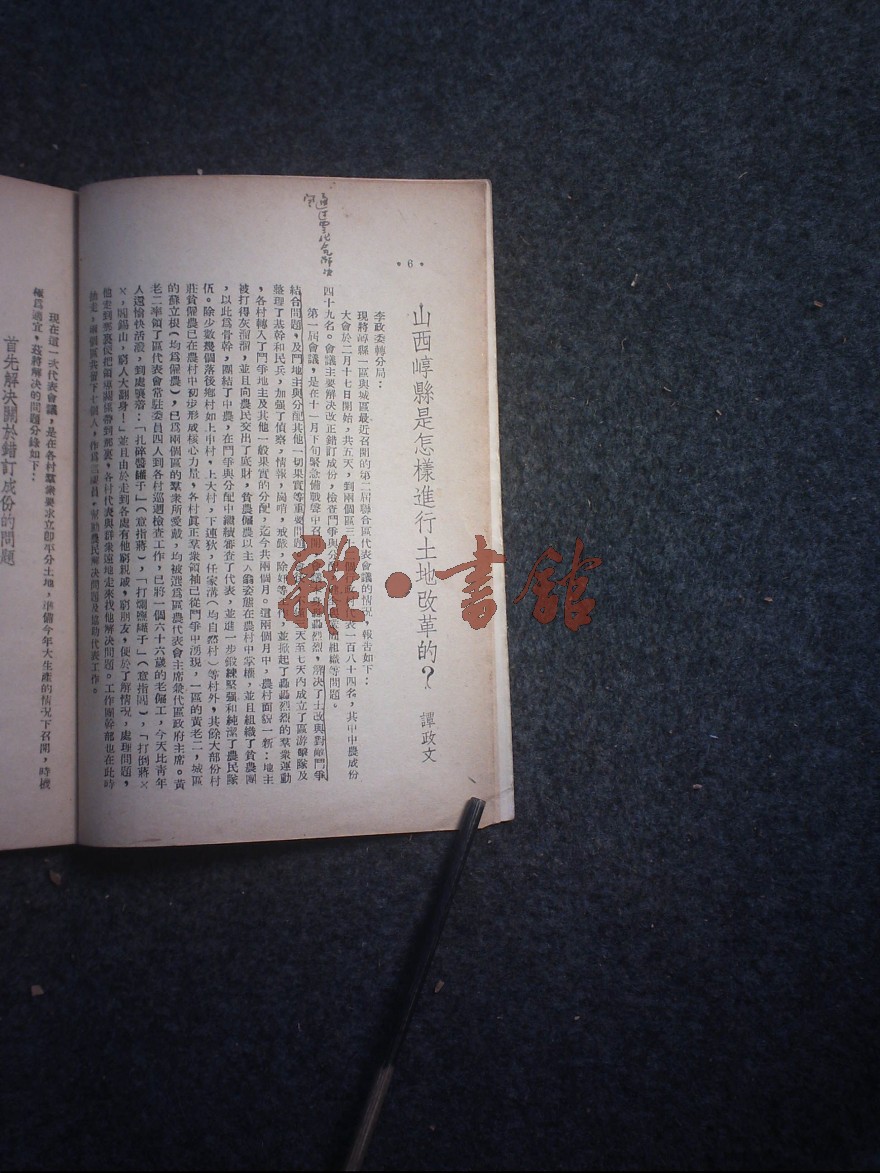 •6•
山西崞縣是怎樣進行土地改革的？
譚政文
李政委轉分局：
現將崞縣一區與城區最近召開的第二屆聯合區代表會議的情況，報告如下：
大會於二月十七日開始，共五天，到兩個區三 表一百八十四名，其中中農成份
四十九名。會議主要解決改正錯訂成份，檢查鬥爭與分配 組織等問題。
第一屆會議，是在十一月下旬緊急備戰聲中召開 轟轟烈烈，解決了土改與對敵鬥爭
結合問題，及鬥地主與分配其他一切果實等重要問題 天至七天內成立了區游擊隊及
整理了基幹和民兵，加强了偵察，情報，崗哨，戒嚴，除奸等 並掀起了轟轟烈烈的羣衆運動
，各村轉入了鬥爭地主及其他一般果實的分配，迄今共兩個月。這兩個月中，農村面貌一新：地主
被打得灰溜溜，並且向農民交出了底財，貧農僱農以主人翁姿態在農村中掌權，並且組織了貧農團
，以此爲骨幹，團結了中農，在鬥爭與分配中繼續審查了代表，並進一步鍛鍊堅强和純潔了農民隊
伍。除少數幾個落後鄉村如上申村，上大村，下連狄，任家溝（均自然村）等村外，其餘大部份村
莊貧僱農已在農村中初步形成核心力量，各村眞正羣衆領袖已從鬥爭中湧現，一區的黃老二，城區
的蘇立根（均爲僱農），已爲兩個區的羣衆所愛戴，均被選爲區農代表會主席兼代區政府主席。黃
老二率領了區代表會常駐委員四人到各村巡迴檢查工作，已將一個六十六歲的老僱工，今天比青年
人還愉快活潑，到處嚷着：「扎碎醬罐子」（意指蔣），「打爛鹽繩子」（意指閻），「打倒蔣×
×，閻錫山，窮人大翻身！」並且由於走到各處有他窮親戚，窮朋友，便於了解情況，處理問題，
他走到那裏便把領導關係帶到那裏，各村代表與群衆遠地走來找他解決問題。工作團幹部也在此時
抽走，兩個區共留下七個人，作爲三國員，幫助農民解決問題及協助代表工作。
現在這一次代表會議，是在各村羣衆要求立卽平分土地，準備今年大生產的情況下召開，時機
極爲適宜，茲將解決的問題分錄如下：
首先解決關於錯訂成份的問題
雜·書館